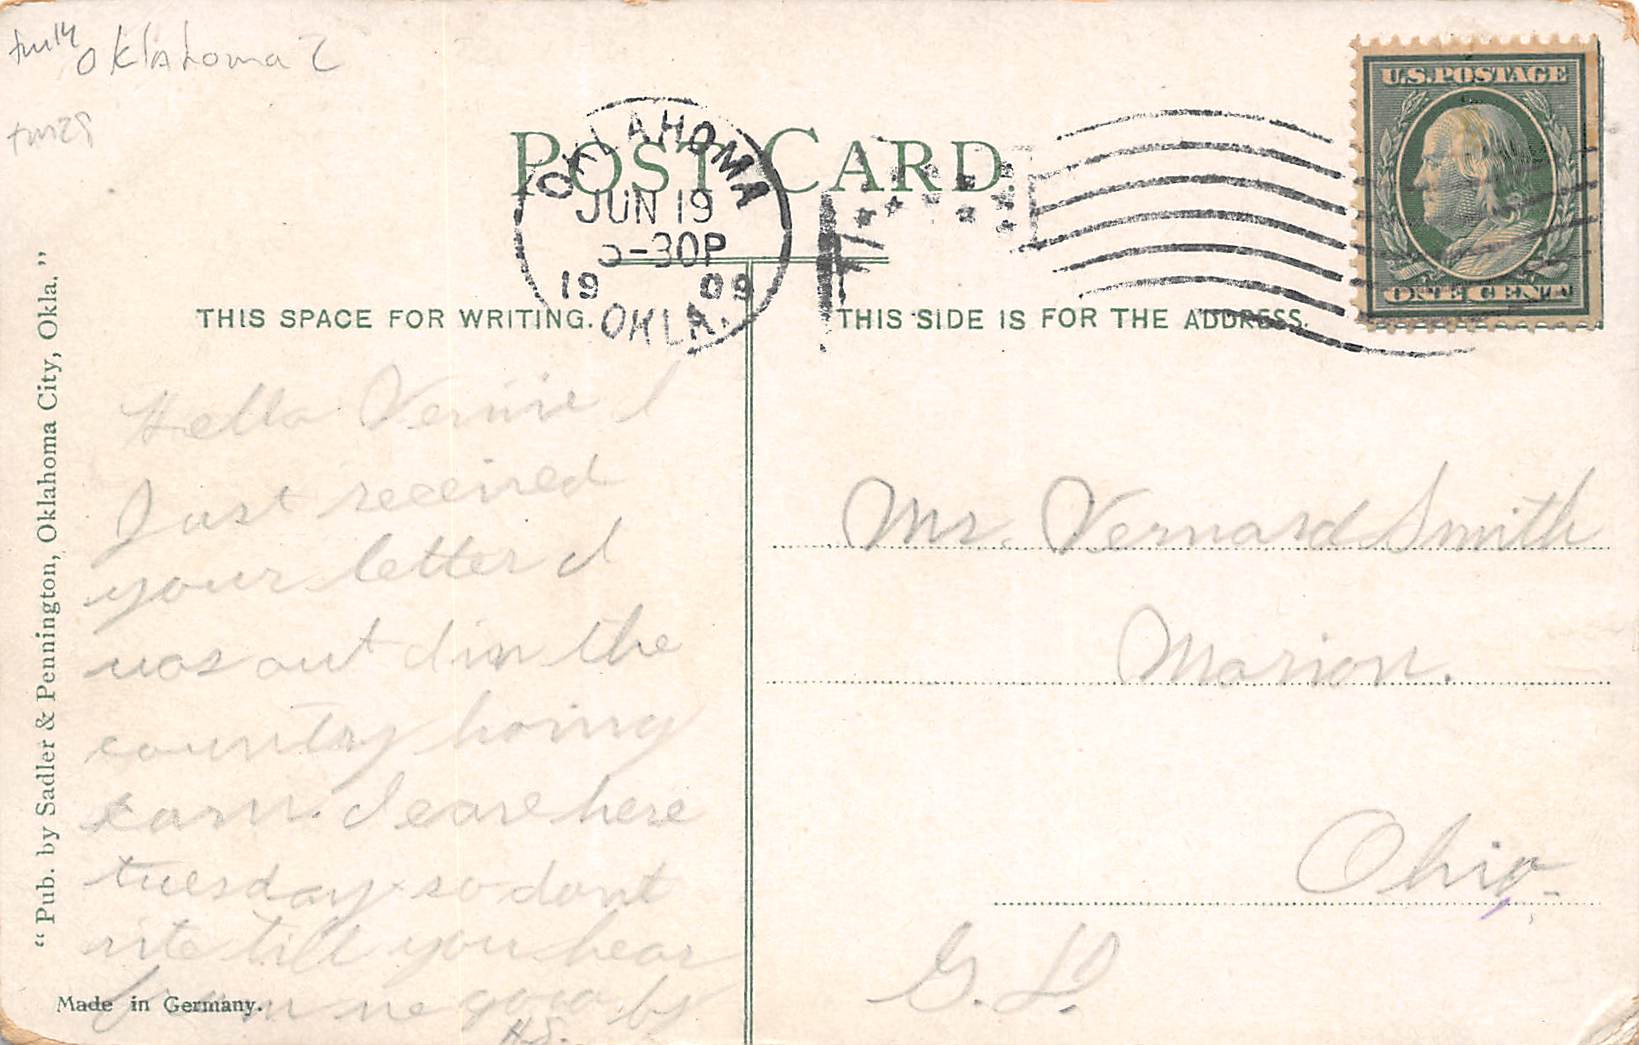 Oklahoma 2
POST CARD.
U.S. POSTAGE
ONE CENT
OKLAHOMA
JUN 19
-30P
1909
OKLA.
THIS SPACE FOR WRITING.
THIS SIDE IS FOR THE ADDRESS.
"Pub. by Sadler & Pennington, Oklahoma City, Okla."
Made in Germany.
Hello Vernie I
Just received
your letter I
was out in the
country hoing
carn. I
here
tuesday so dont
rite till you hear
from me good by
H.S.
Mr. Vernard Smith
Marion.
Ohio.
G. D.